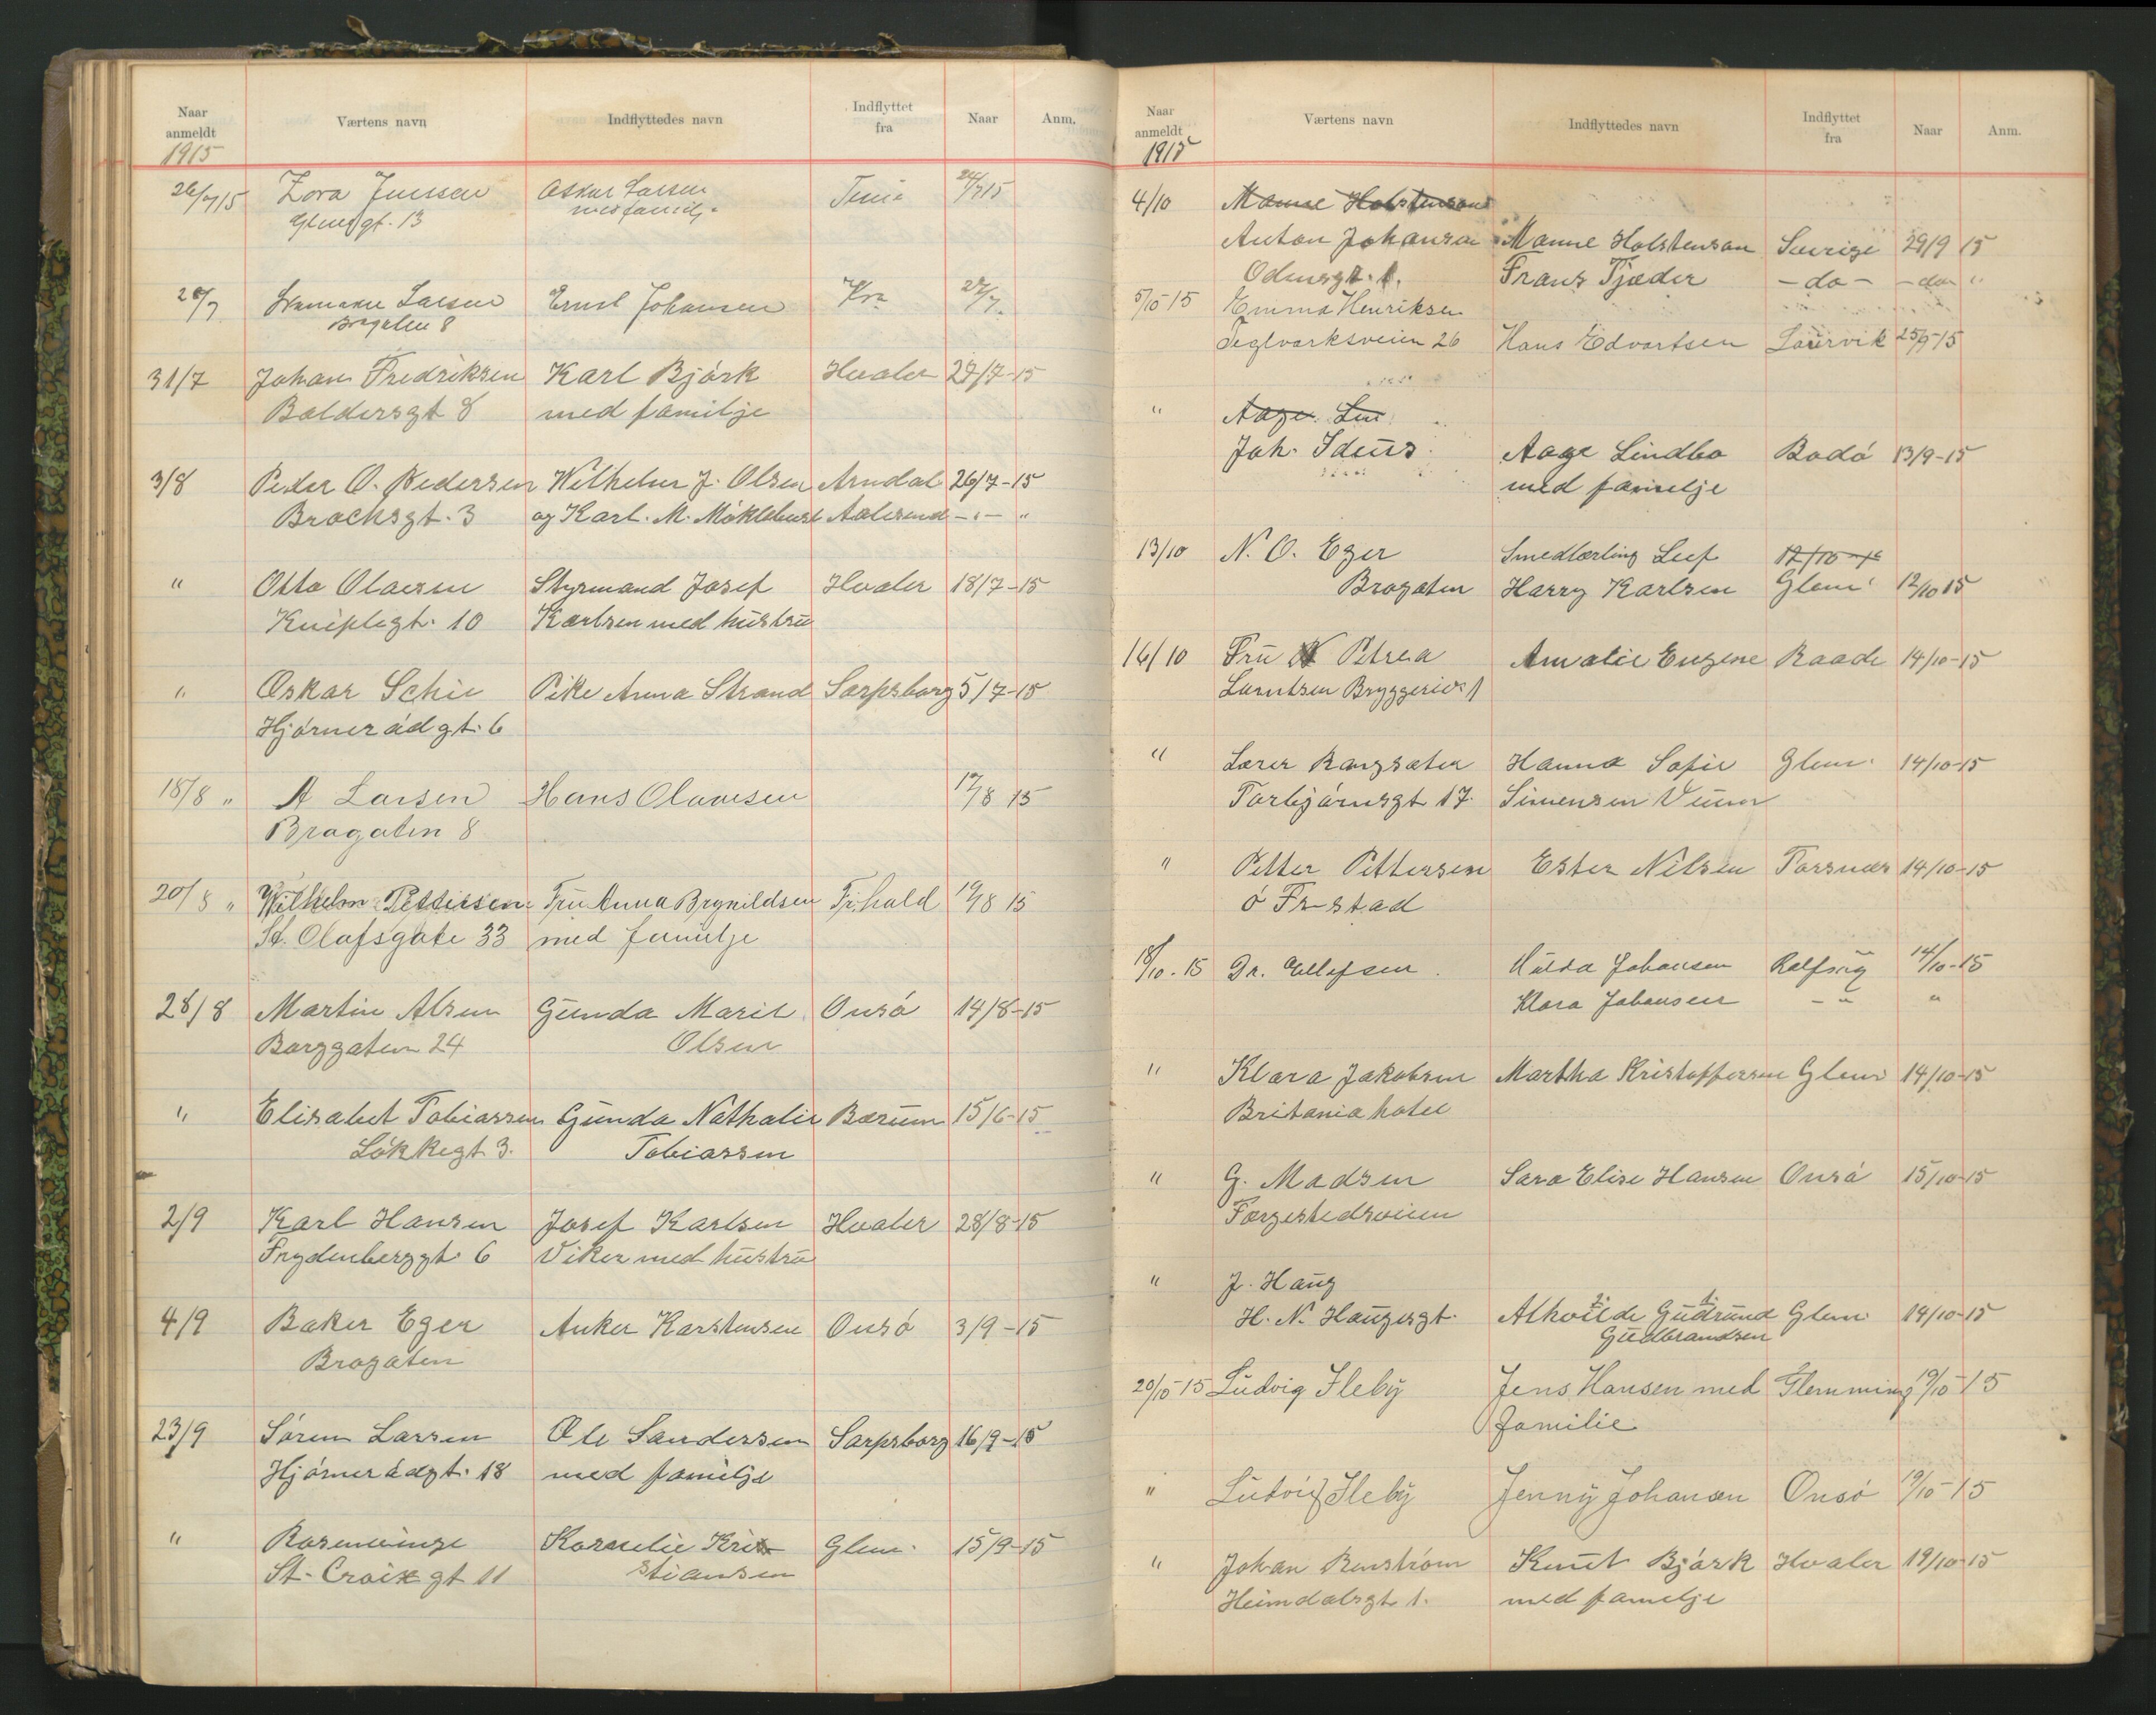 Naar anmeldt Værtens navn Indflyttedes navn Indflyttet fra Naar Anm.
1915
26/7 15 Zora Jenssen Oskar Larsen 24/7 15
Glemsgt. 13 med familj.
28/7 Larsen Ernst Johansen Kra 27/7
Bragaten 8
31/7 Johan Fredriksen Karl Bjørk Hvaler 29/7-15
Baldersgt 8 med familje
3/8 Peder O. Pedersen Wilhelm J. Olsen Arndal 26/7-15
Brochsgt. 3 og Karl. M. Møklebust Aalesund -"- "
" Otto Olaersen Styrmand Josef Hvaler 18/7-15
Kniplegt. 10 Karlsen med hustru
" Oskar Schie Pike Anna Strand Sarpsborg 5/7-15
Hjørnerådgt. 6
18/8 " A Larsen Hans Olavesen 17/8 15
Bragaten 8
20/8 " Wilhelm Pettersen Fru Anna Brynildsen Fr.hald 19/8 15
St. Olafsgate 33 med familje
28/8 Martin Alsen Gunda Marie Onsø 14/8-15
Borggaten 24 Olsen
" Elisabet Tobiassen Gunda Nathalie Bærum 15/6-15
Løkkegt 3. Tobiassen
2/9 Karl Hansen Josef Karlsen Hvaler 28/8-15
Frydenberggt. 6 Viker med hustru
4/9 Baker Eger Anker Karstensen Onsø 3/9-15
Bragaten
23/9 Søren Larsen Ole Sandersen Sarpsborg 16/9-15
Hjørnerådgt. 18 med familje
" Rosenvinge Kornelie Kri- Glem. 15/9-15
St. Croix gt 11 stiansen
Naar anmeldt Værtens navn Indflyttedes navn Indflyttet fra Naar Anm.
1915
4/10 Manne Holstenson
Anton Johansen Manne Holstenson Sverige 29/9 15
Odinsgt. 1. Frans Tjæder -do- -do- "
5/10-15 Emma Henriksen
Teglverksveien 26 Hans Edvartsen Laurvik 25/9-15
" Aage Lin
Joh. Ideus Aage Lindbo Bodø 13/9-15
med familje
13/10 N. O. Eger Smedlærling Leif 12/10-15
Bragaten Harry Karlsen Glem. 12/10 15
16/10 Fru Petrea Amalie Eugene Raade 14/10-15
Larntsen Bryggeriv. 1
" Lærer Rangsæter Hanna Sofie Glem. 14/10-15
Torbjørnsgt 17. Simensen Veum
" Petter Pettersen Ester Nilsen Torsnæs 14/10-15
ø Fr-stad
18/10-15 Dr. Ellefsen. Hulda Johansen Rolfsøy 14/10-15
Klara Johansen -"- "
" Klara Jakobsen Martha Kristoffersen Glem 14/10-15
Britania hotel
" G. Madsen Sara Elise Hansen Onsø 15/10-15
Færgestedsveien
" J. Haug
H. N. Haugesgt. Alhvilde Gudrund Glem 14/10-15
Gudbrandsen
20/10-15 Ludvig Ileby Jens Hansen med Glemming 19/10-15
familie
" Ludvig Ileby Jenny Johansen Onsø 19/10-15
" Johan Benstrøm Knut Bjørk Hvaler 19/10-15
Heimdalsgt 1. med familje